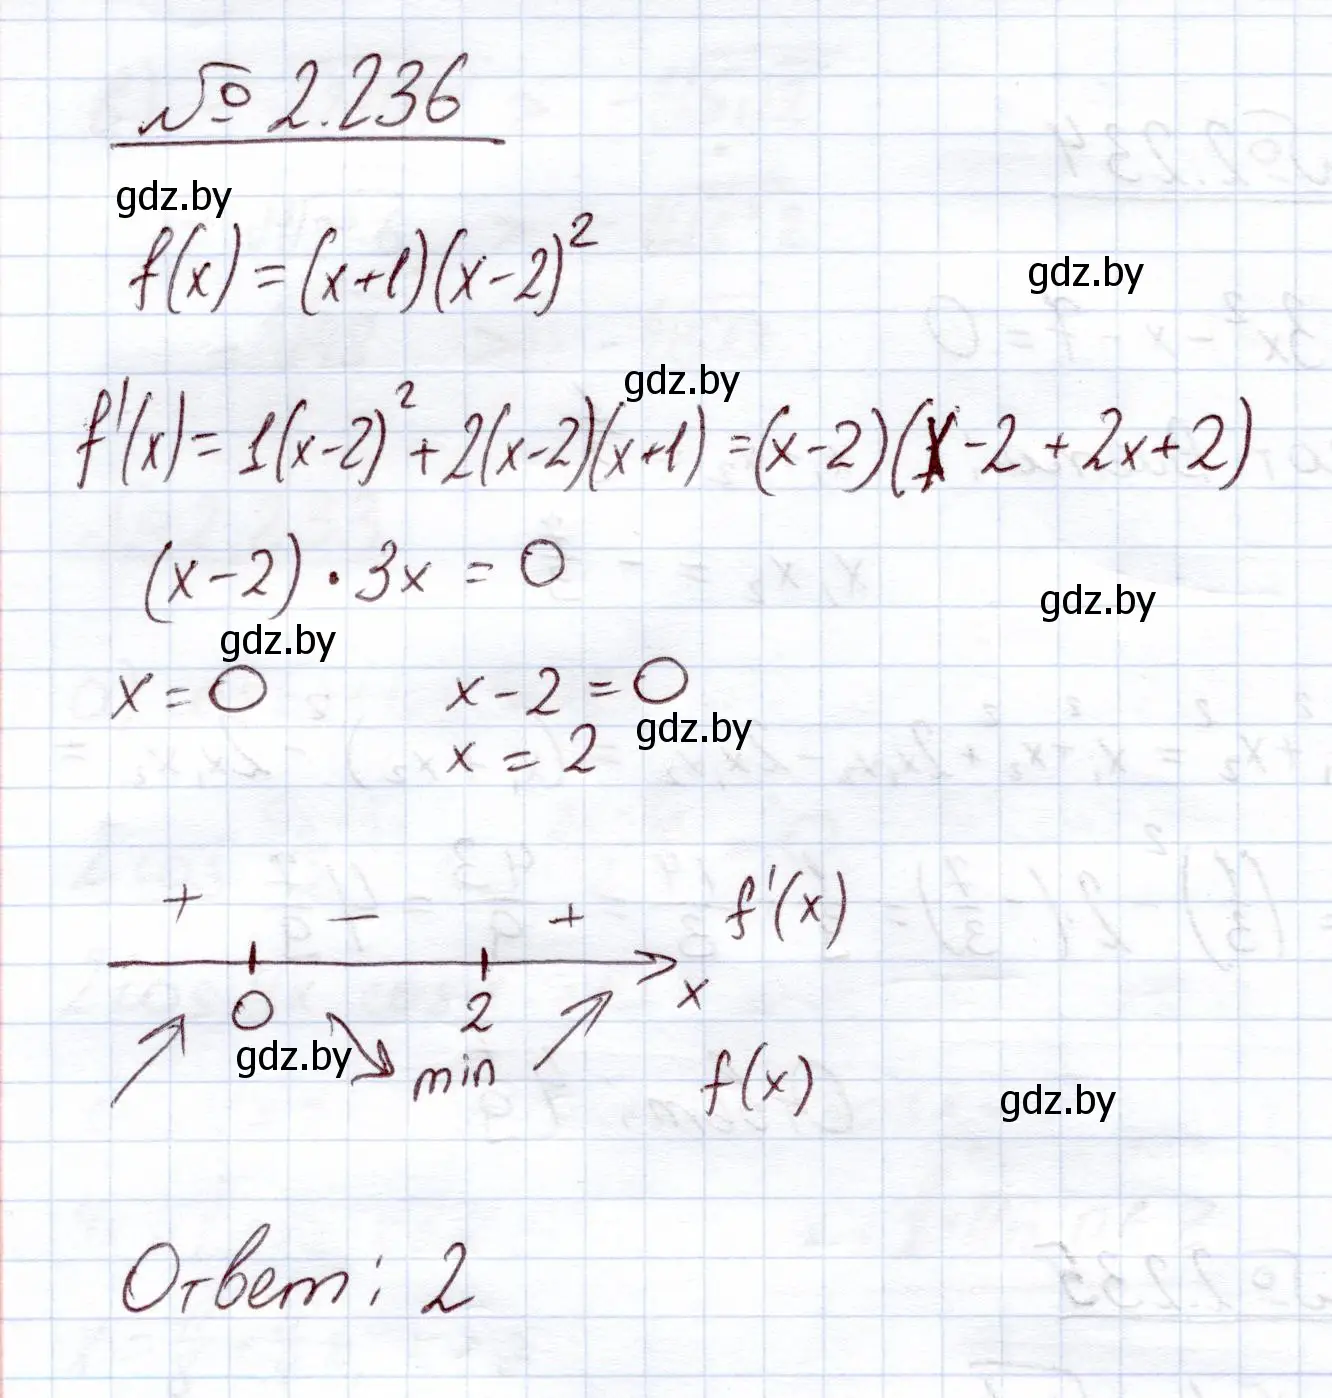 № 2.236
gdz.by
f(x) = (x+1)(x-2)²
gdz.by
gdz.by
f'(x) = 1(x-2)² + 2(x-2)(x+1) = (x-2)(x-2+2x+2)
(x-2) · 3x = 0
gdz.by
gdz.by
x = 0 x-2 = 0
gdz.by
x = 2
+ − + f'(x)
0 2 x
gdz.by min f(x)
gdz.by
Ответ: 2